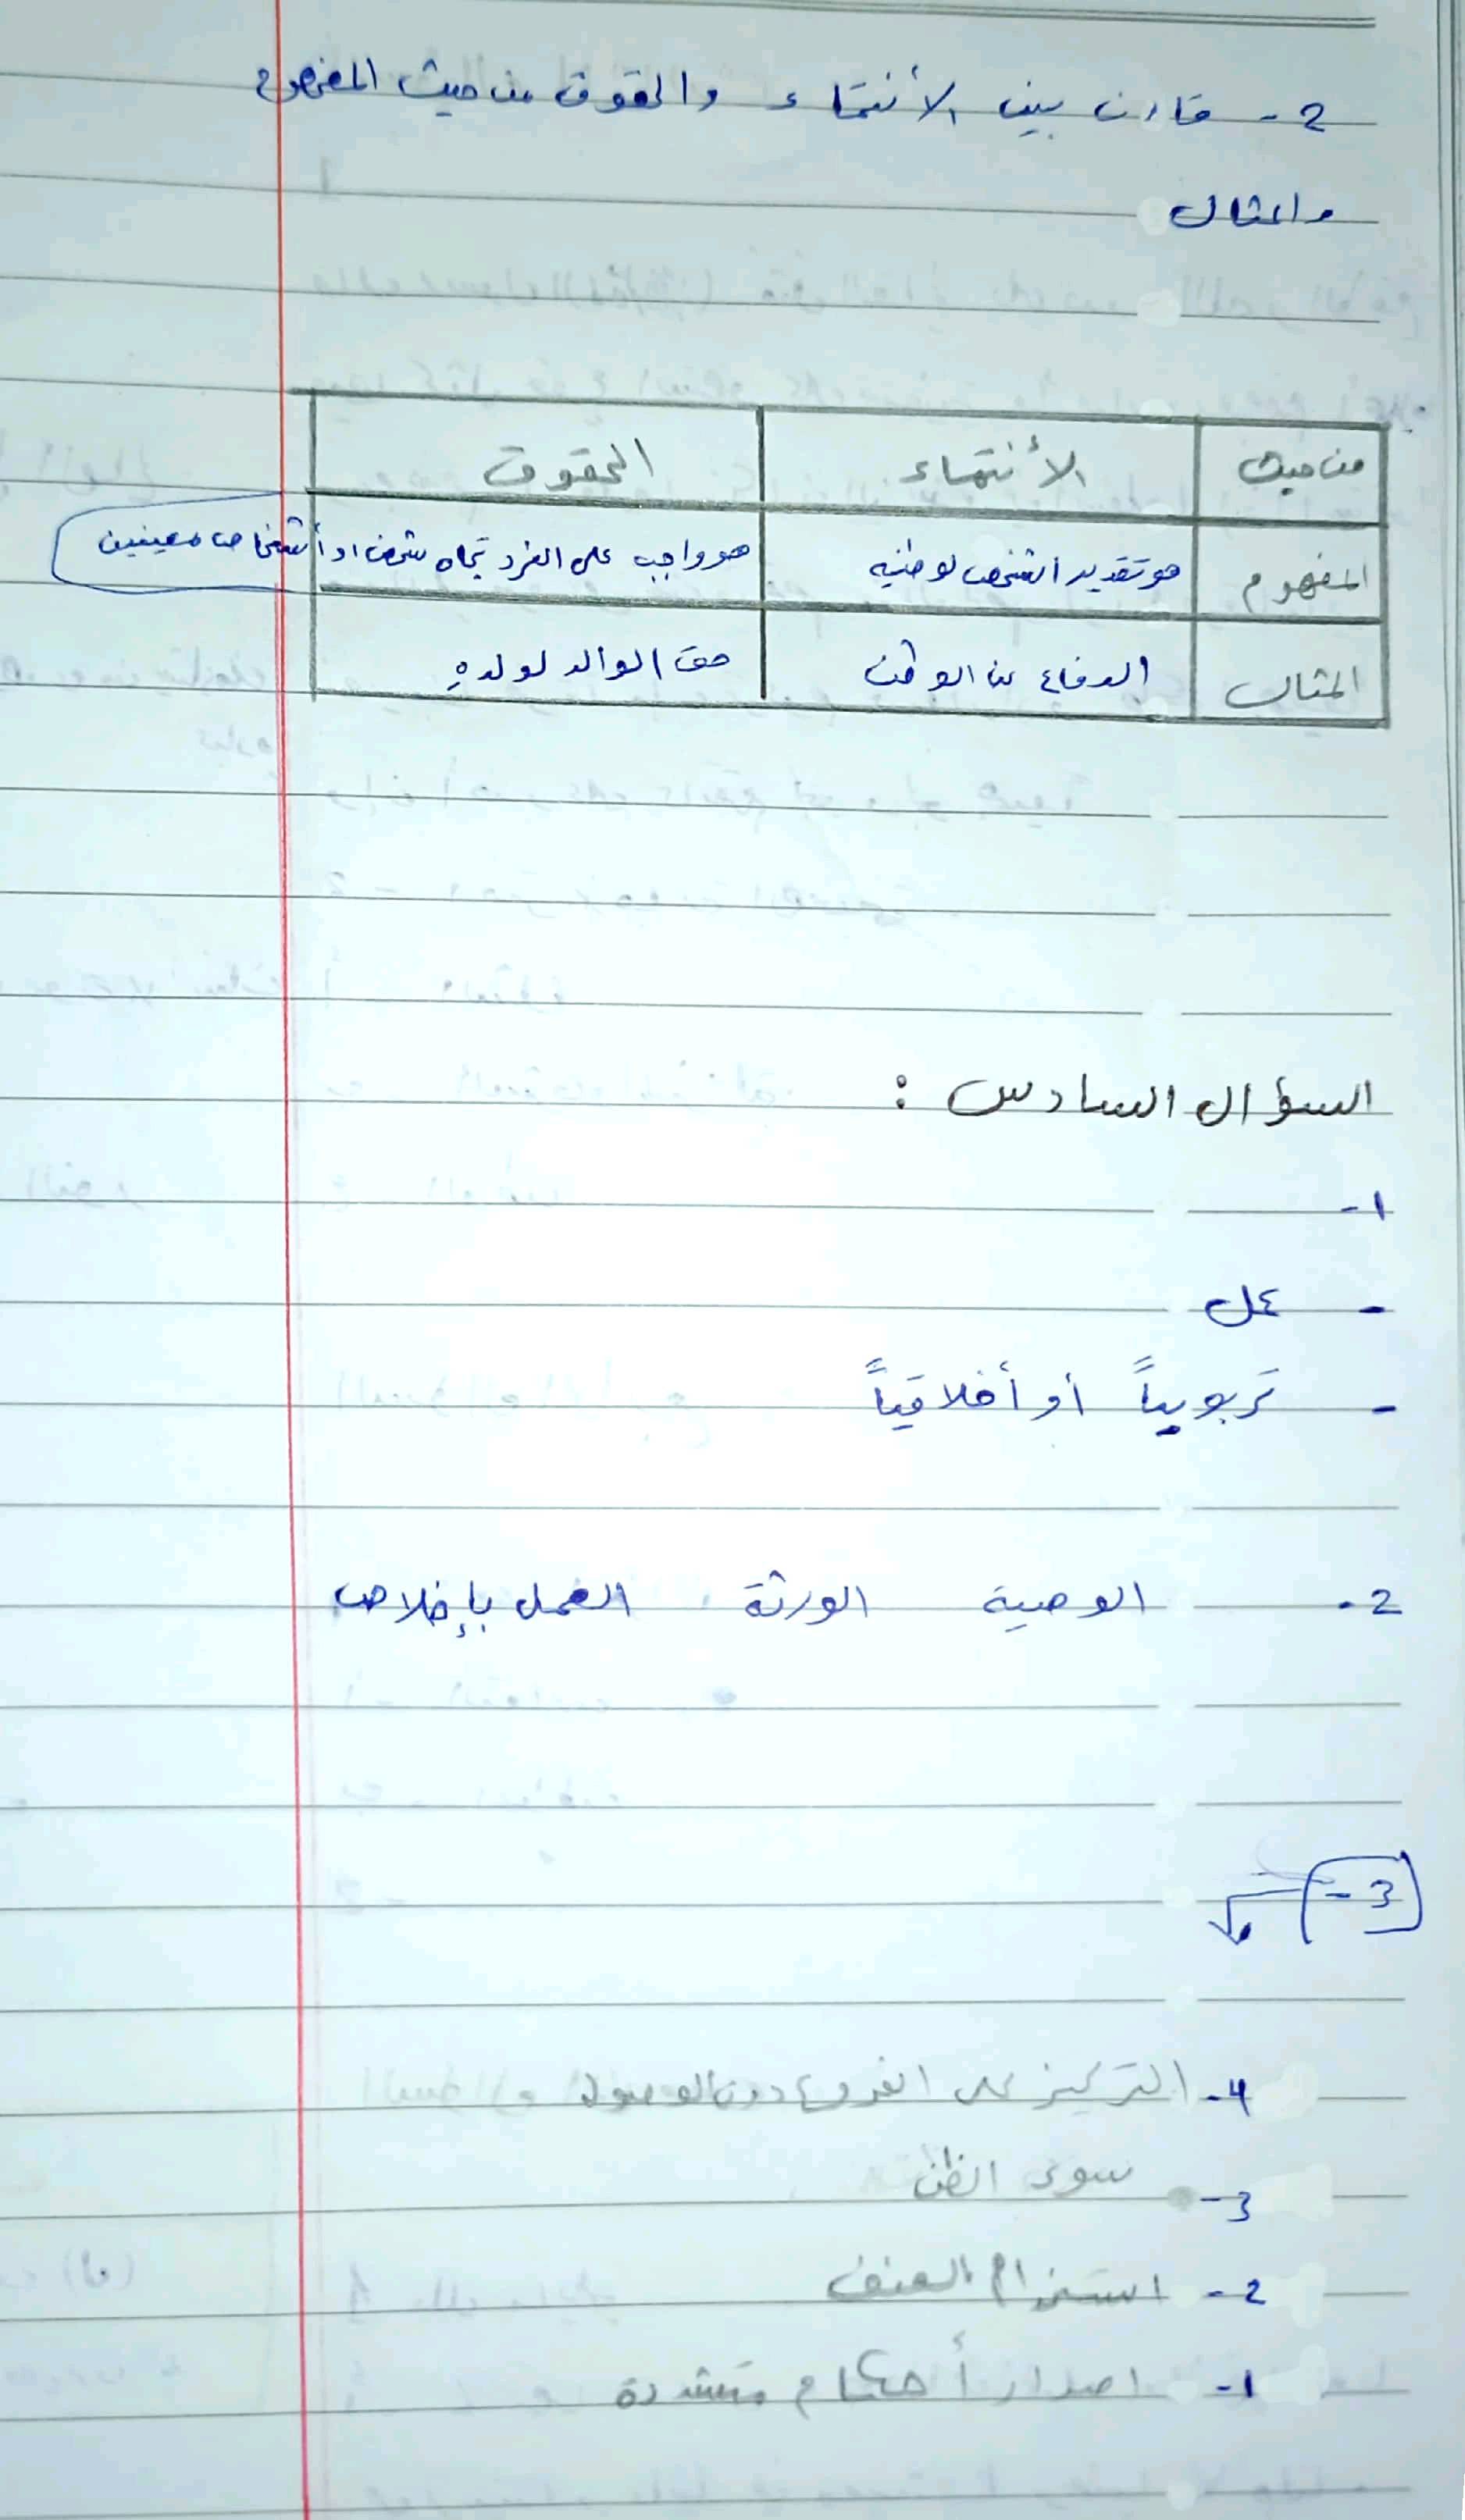 2- قارن بين الأنتماء والحقوق من حيث المفهوم
والمثال
من حيث الأنتماء الحقوق
المفهوم هو تقدير الشخص لوطنيه هو واجب على الفرد تجاه شخص او أشخاص معينين
المثال الدفاع عن الوطن حق الوالد لولده
السؤال السادس :
1-
- عمل
- تربوياً أو أخلاقياً
2- الوصية الورثة العمل بإخلاص
3-
4- التركيز على الفروع دون
3- سوء الظن
2- استخدام العنف
1- اصدار أحكام متشددة